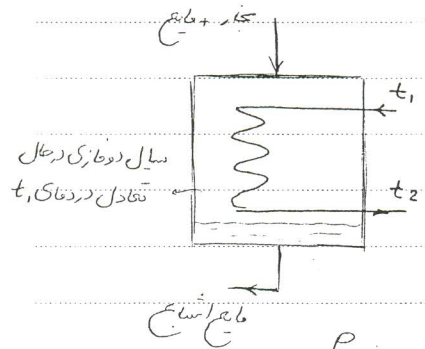 بخار + مایع
t₁
سیال دو فازی در حال
تعادل در دمای t₁
t₂
مایع اشباع
P